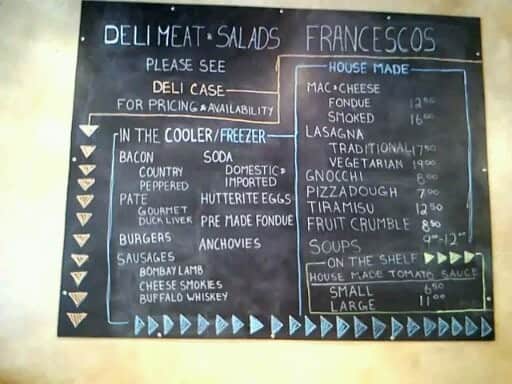 DELI MEAT & SALADS
PLEASE SEE
DELI CASE
FOR PRICING & AVAILABILITY
IN THE COOLER/FREEZER
BACON
COUNTRY
PEPPERED
PATE
GOURMET
DUCK LIVER
BURGERS
SAUSAGES
BOMBAY LAMB
CHEESE SMOKIES
BUFFALO WHISKEY
SODA
DOMESTIC &
IMPORTED
HUTTERITE EGGS
PRE MADE FONDUE
ANCHOVIES
FRANCESCOS
HOUSE MADE
MAC & CHEESE
FONDUE 12.50
SMOKED 16.00
LASAGNA
TRADITIONAL 17.50
VEGETARIAN 19.00
GNOCCHI 8.00
PIZZADOUGH 7.00
TIRAMISU 12.50
FRUIT CRUMBLE 8.50
SOUPS
ON THE SHELF
HOUSE MADE TOMATO SAUCE
SMALL 6.50
LARGE 11.00